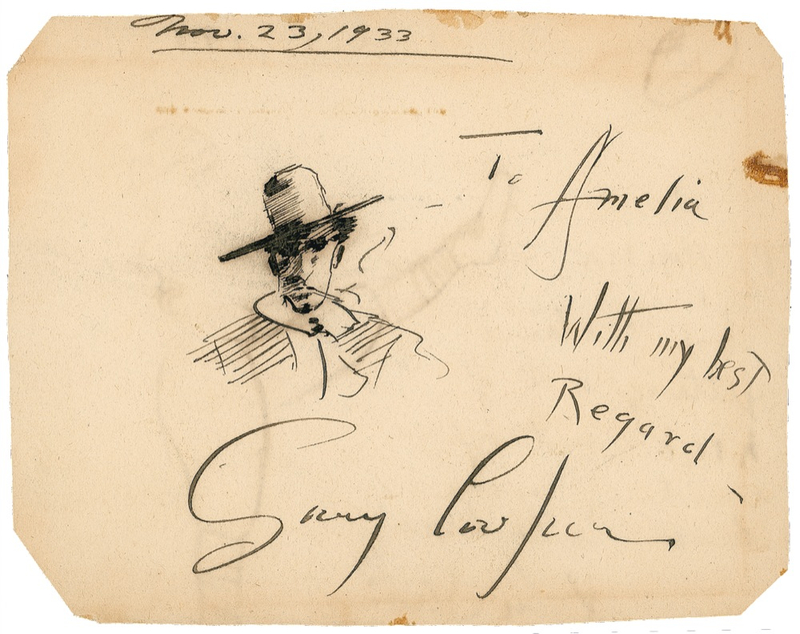 Nov. 23, 1933
To Amelia
With my best
Regard
Gary Cooper